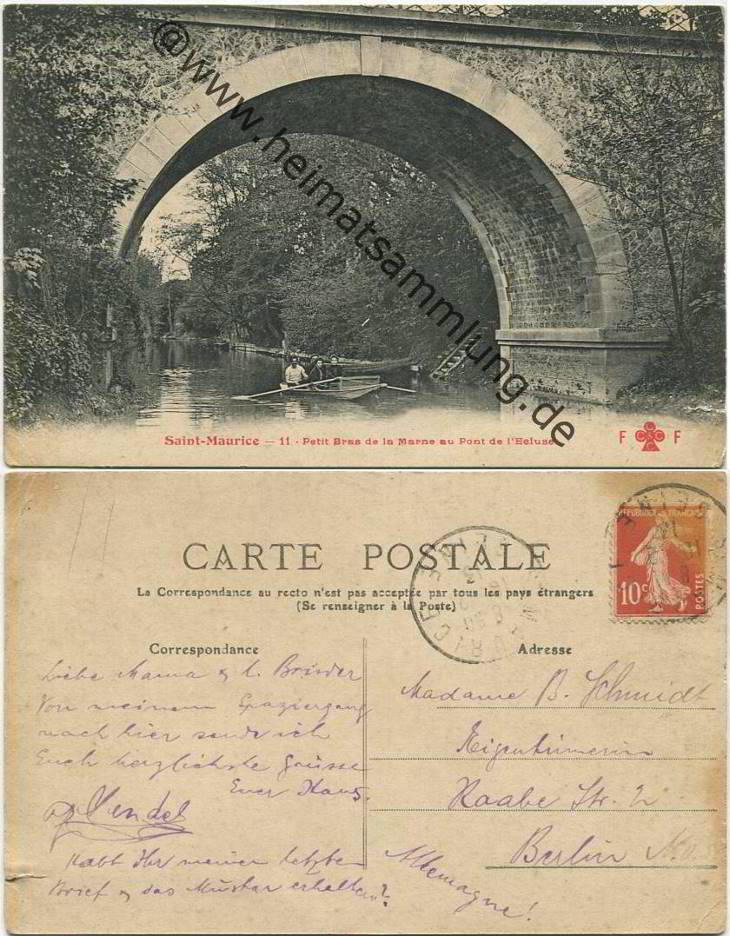 @www.heimatsammlung.de
Saint-Maurice – 11 - Petit Bras de la Marne au Pont de l'Ecluse
F CCCC F
CARTE POSTALE
La Correspondance au recto n'est pas acceptée par tous les pays étrangers
(Se renseigner à la Poste)
REPUBLIQUE FRANÇAISE
10c
POSTES
Correspondance
Liebe Mama & l. Brüder
Von meinem Spaziergang
nach hier sende ich
Euch herzlichste Grüsse
Euer Hans.
Habt Ihr meinen letzten
Brief & das Muster erhalten?
Adresse
Madame B. Schmidt
Eigentümerin
Raabe Str. 2
Berlin No.
Allemagne!